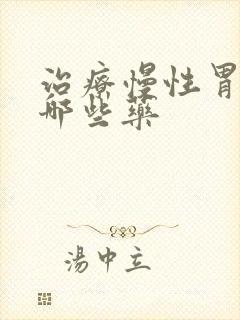 治療慢性胃
哪些藥
湯中立